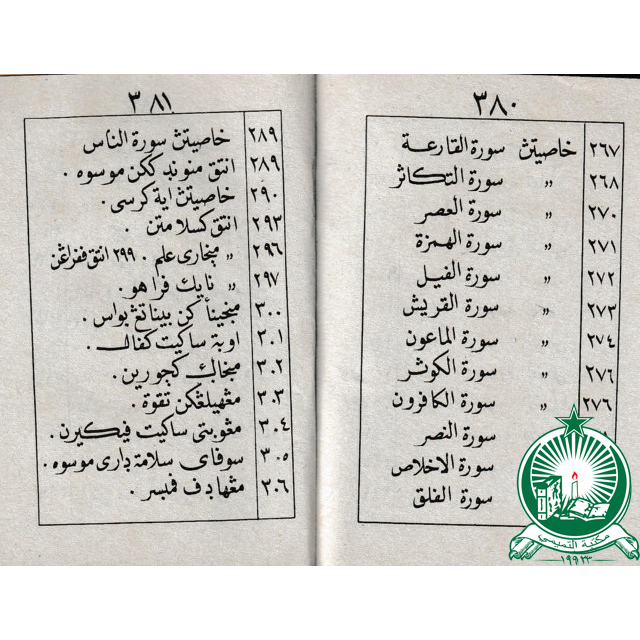 ٣٨٠
٢٦٧ خاصيتڽ سورة القارعة
٢٦٨ " سورة التكاثر
٢٧٠ " سورة العصر
٢٧١ " سورة الهمزة
٢٧٢ " سورة الفيل
٢٧٣ " سورة القريش
٢٧٤ " سورة الماعون
٢٧٦ " سورة الكوثر
٢٧٦ " سورة الكافرون
سورة النصر
سورة الاخلاص
سورة الفلق
مكتبة
٣٨١
٢٨٩ خاصيتڽ سورة الناس
٢٨٩ انتق منوندقكن موسوه .
٢٩٠ خاصيتڽ اية كرسي .
٢٩٣ انتق كسلامتن .
٢٩٦ " مبخارى علم . ٢٩٩ انتق ففراڠن
٢٩٧ " نايك فراهو .
٣٠٠ مبنجيناكن بيناتڠ بواس .
٣٠١ اوبة ساكيت كفال .
٣٠٢
٣٠٣ مڠهيلڠكن
٣٠٤ مڠوبتى ساكيت فيكيرن .
٣٠٥ سوفاى سلامة دارى موسوه .
٢٠٦ مڠهادف